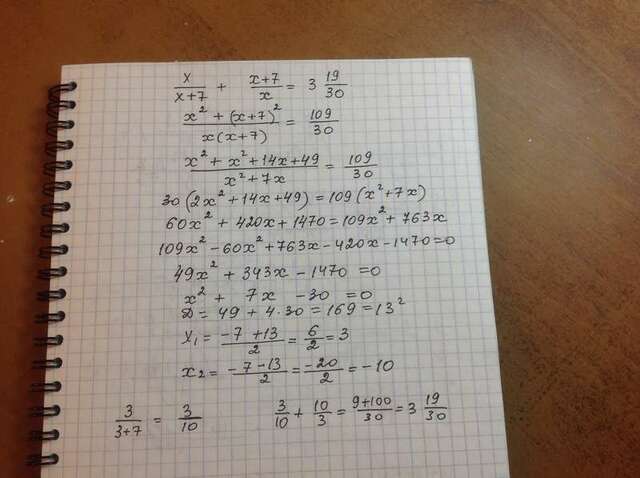 x/(x+7) + (x+7)/x = 3 19/30
(x² + (x+7)²)/(x(x+7)) = 109/30
(x² + x² + 14x + 49)/(x² + 7x) = 109/30
30(2x² + 14x + 49) = 109(x² + 7x)
60x² + 420x + 1470 = 109x² + 763x
109x² - 60x² + 763x - 420x - 1470 = 0
49x² + 343x - 1470 = 0
x² + 7x - 30 = 0
D = 49 + 4·30 = 169 = 13²
x₁ = (-7+13)/2 = 6/2 = 3
x₂ = (-7-13)/2 = -20/2 = -10
3/(3+7) = 3/10    3/10 + 10/3 = (9+100)/30 = 3 19/30